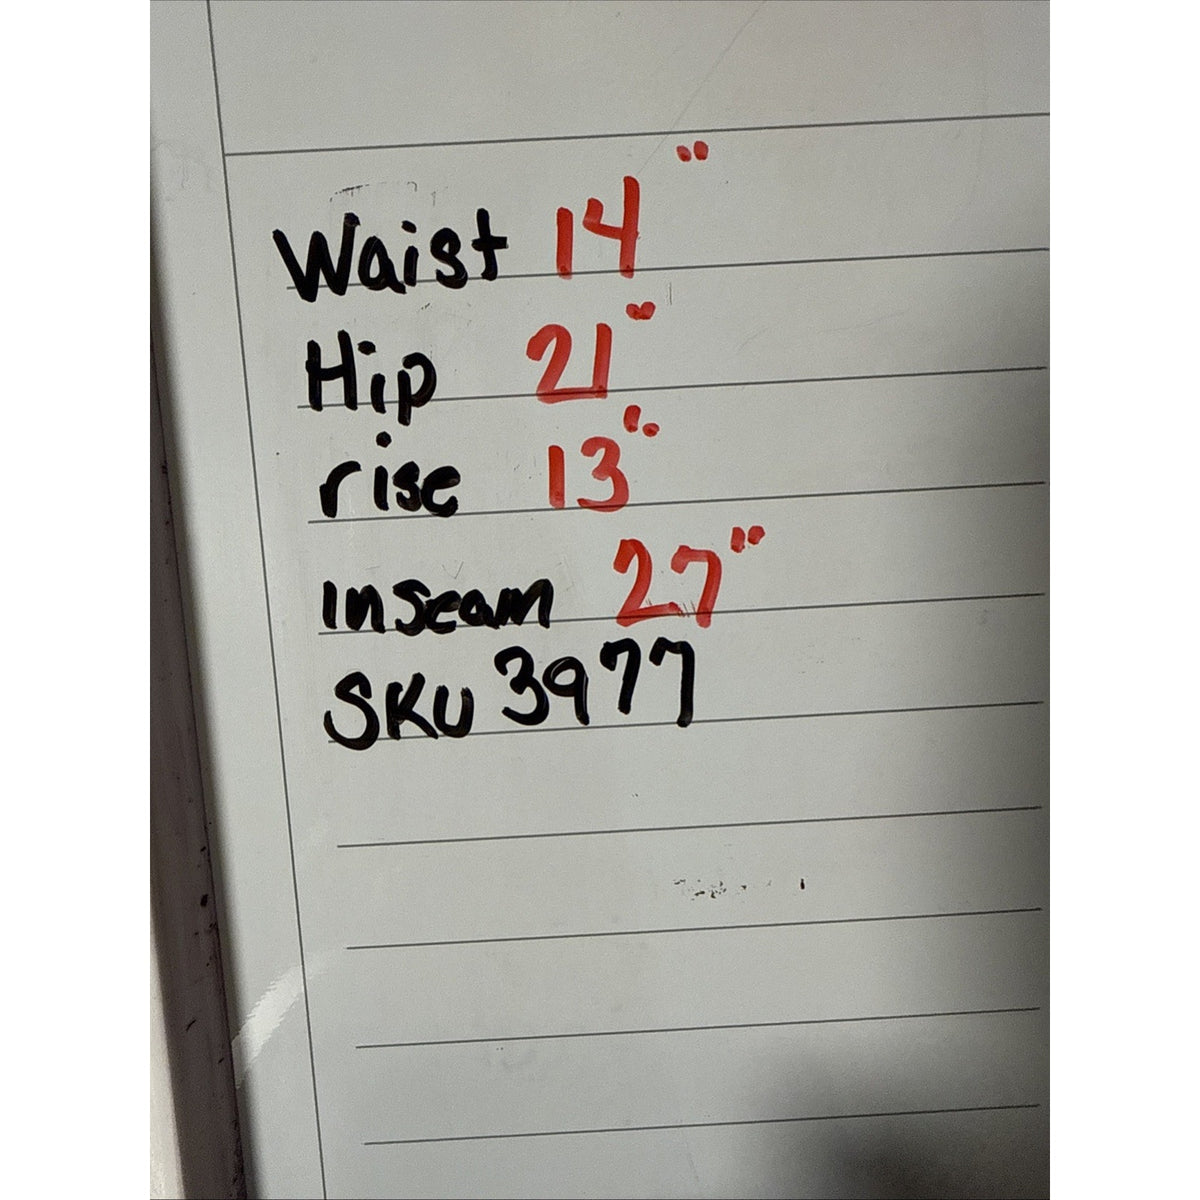 Waist 14"
Hip 21"
rise 13"
Inseam 27"
SKU 3977